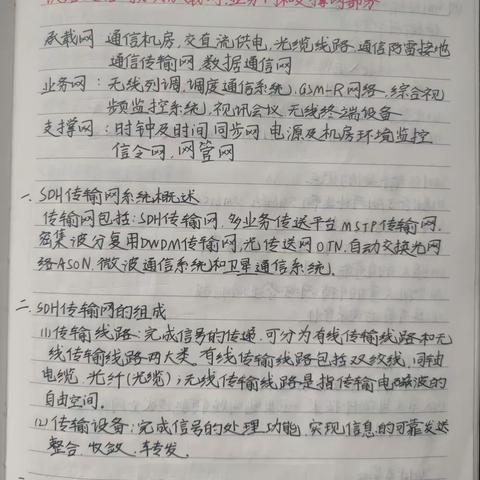 承载网 通信机房,交直流供电,光缆线路,通信防雷接地
通信传输网,数据通信网
业务网:无线列调,调度通信系统,GSM-R网络,综合视
频监控系统,视讯会议,无线终端设备
支撑网:时钟及时间同步网,电源及机房环境监控
信令网,网管网
一、SDH传输网系统概述
传输网包括:SDH传输网,多业务传送平台MSTP传输网,
密集波分复用DWDM传输网,光传送网OTN,自动交换光网
络ASON,微波通信系统和卫星通信系统。
二、SDH传输网的组成
(1)传输线路:完成信号的传递,可分为有线传输线路和无
线传输线路两大类。有线传输线路包括双绞线,同轴
电缆,光纤(光缆);无线传输线路是指传输电磁波的
自由空间。
(2)传输设备:完成信号的处理功能,实现信息的可靠发送
整合,收敛,转发。